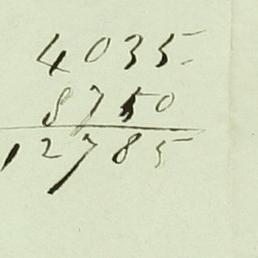 4035
8750
12785